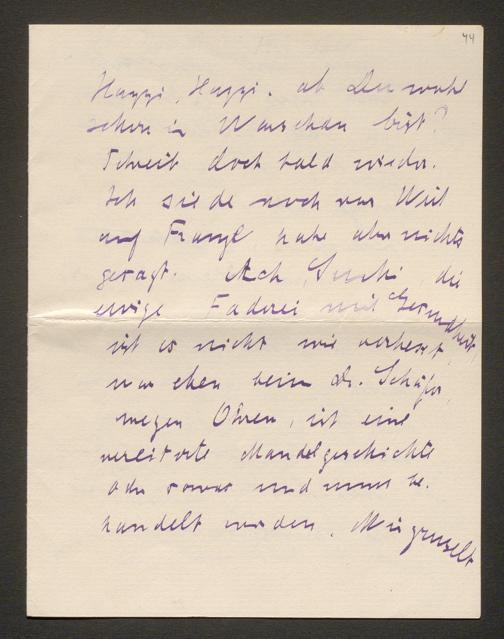 44
Huzzi, Huzzi. ob Du wohl
schon in Warschau bist?
Schreib doch bald wieder.
Ich siede noch vor Wut
auf Franzl habe aber nichts
gesagt. Ach, die
ewige Faderei mit Gesundheit,
ist es nicht wie verhext,
war eben beim Dr. Schäfer,
wegen Ohren, ist eine
vereiterte Mandelgeschichte
oder sowas und muss be-
handelt werden. Mir gruselt